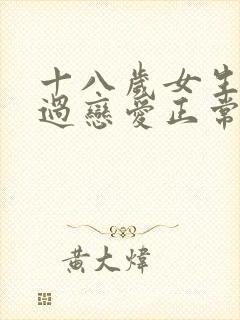 十八歲女生
過戀愛正常
黃大煒